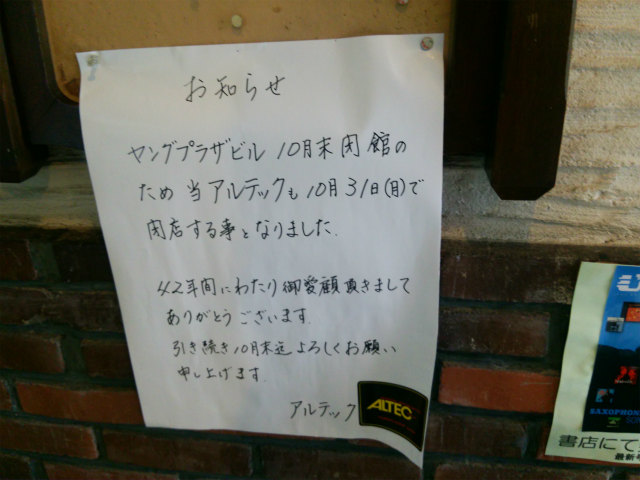 お知らせ
ヤングプラザビル 10月末閉館の
ため当アルテックも10月31日(月)で
閉店する事となりました.
42年間にわたり御愛顧頂きまして
ありがとうございます.
引き続き10月末迄よろしくお願い
申し上げます.
アルテック
ALTEC
SAXOPHON
書店にて
最新号